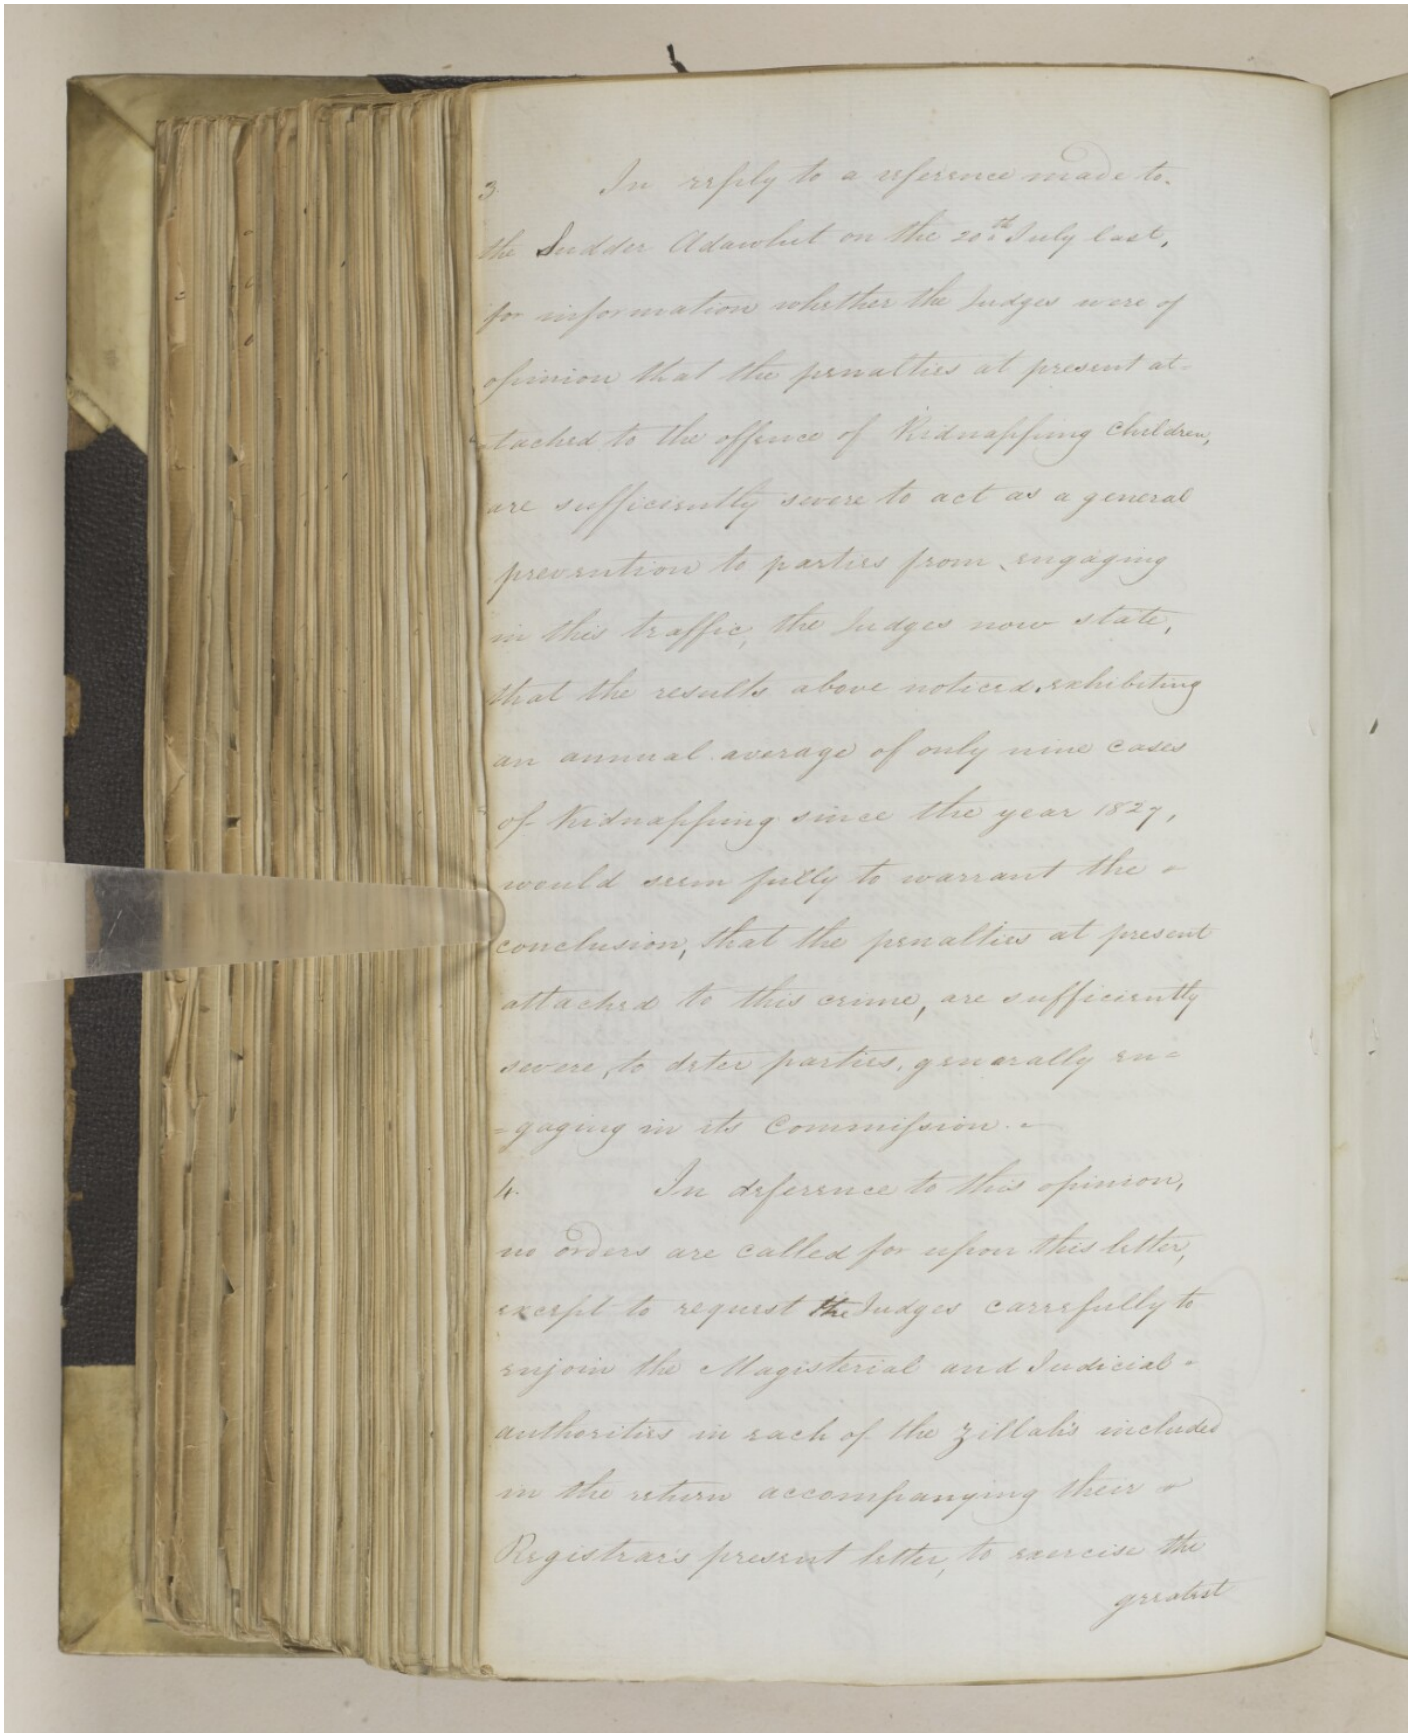 3 In reply to a reference made to
the Sudder Adawlut on the 20th July last,
for information whether the Judges were of
opinion that the penalties at present at-
-tached to the offence of Kidnapping Children,
are sufficiently severe to act as a general
prevention to parties from engaging
in this traffic, the Judges now state,
that the results above noticed, exhibiting
an annual average of only nine cases
of Kidnapping since the year 1827,
would seem fully to warrant the -
conclusion, that the penalties at present
attached to this crime, are sufficiently
severe, to deter parties, generally en=
=gaging in its Commission. -
4. In deference to this opinion,
no orders are called for upon this letter,
except to request the Judges carefully to
enjoin the Magisterial and Judicial -
authorities in each of the Zillahs included
in the return accompanying their -
Registrar's present letter, to exercise the
greatest